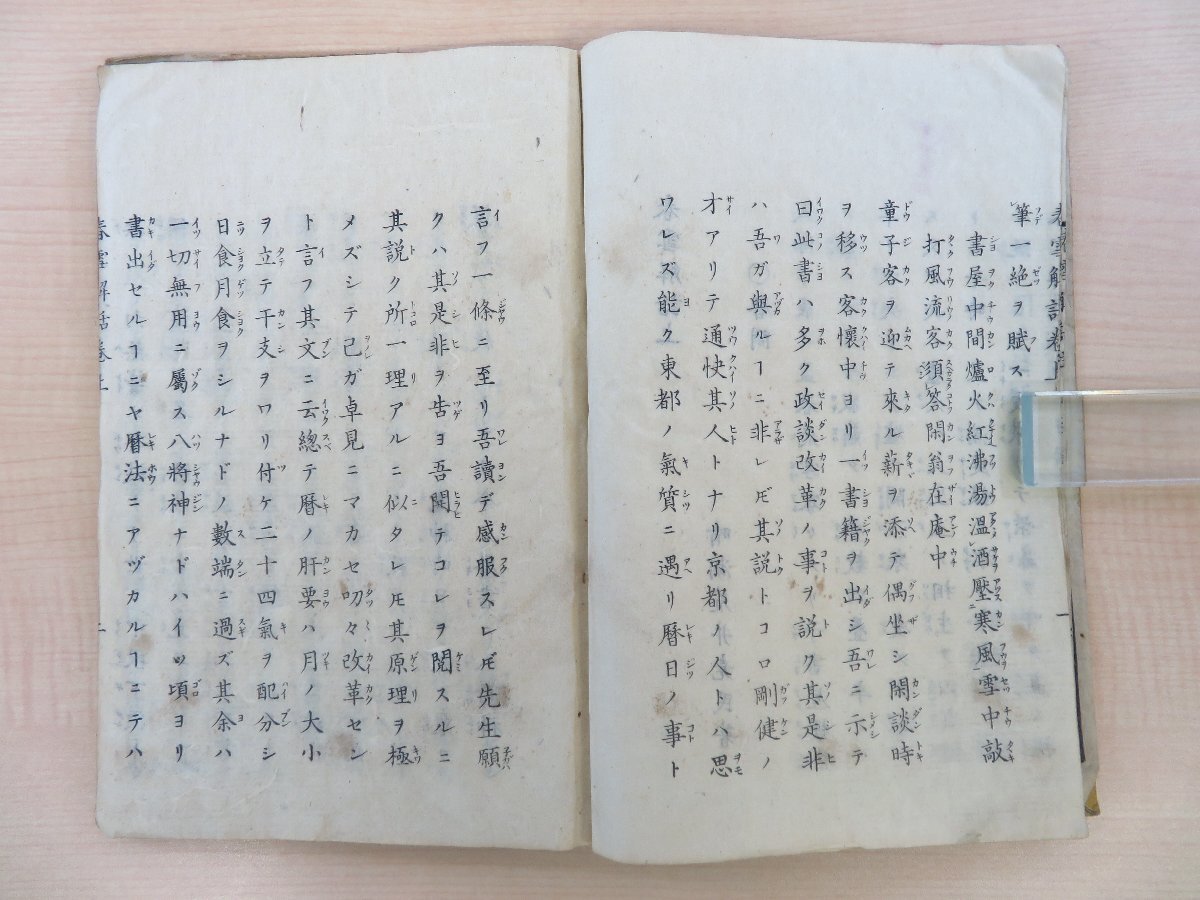 春雪解話卷上
筆一絶ヲ賦ス
書屋中間爐火紅沸湯溫酒壓寒風雪中敲
打風流客須答閑翁在庵中
童子客ヲ迎テ來ル薪ヲ添テ偶坐シ閑談時
ヲ移ス客懷中ヨリ一書籍ヲ出シ吾ニ示テ
曰此書ハ多ク政談改革ノ事ヲ説ク其是非
ハ吾ガ與ルヿニ非レ𪜈其説トコロ剛健ノ
才アリテ通快其人トナリ京都ノ人トハ思
ワレズ能ク東都ノ氣質ニ遇リ曆日ノ事ト
言フ一條ニ至リ吾讀デ感服スレ𪜈先生願
クハ其是非ヲ告ヨ吾開テコレヲ閲スルニ
其説ク所一理アルニ似タレ𪜈其原理ヲ極
メズシテ己ガ卓見ニマカセ叨々改革セン
ト言フ其文ニ云總テ曆ノ肝要ハ月ノ大小
ヲ立テ干支ヲワリ付ケ二十四氣ヲ配分シ
日食月食ヲシルナドノ數端ニ過ズ其余ハ
一切無用ニ屬ス八將神ナドハイツ頃ヨリ
書出セルヿニヤ曆法ニアヅカルヿニテハ
春雪解話卷上